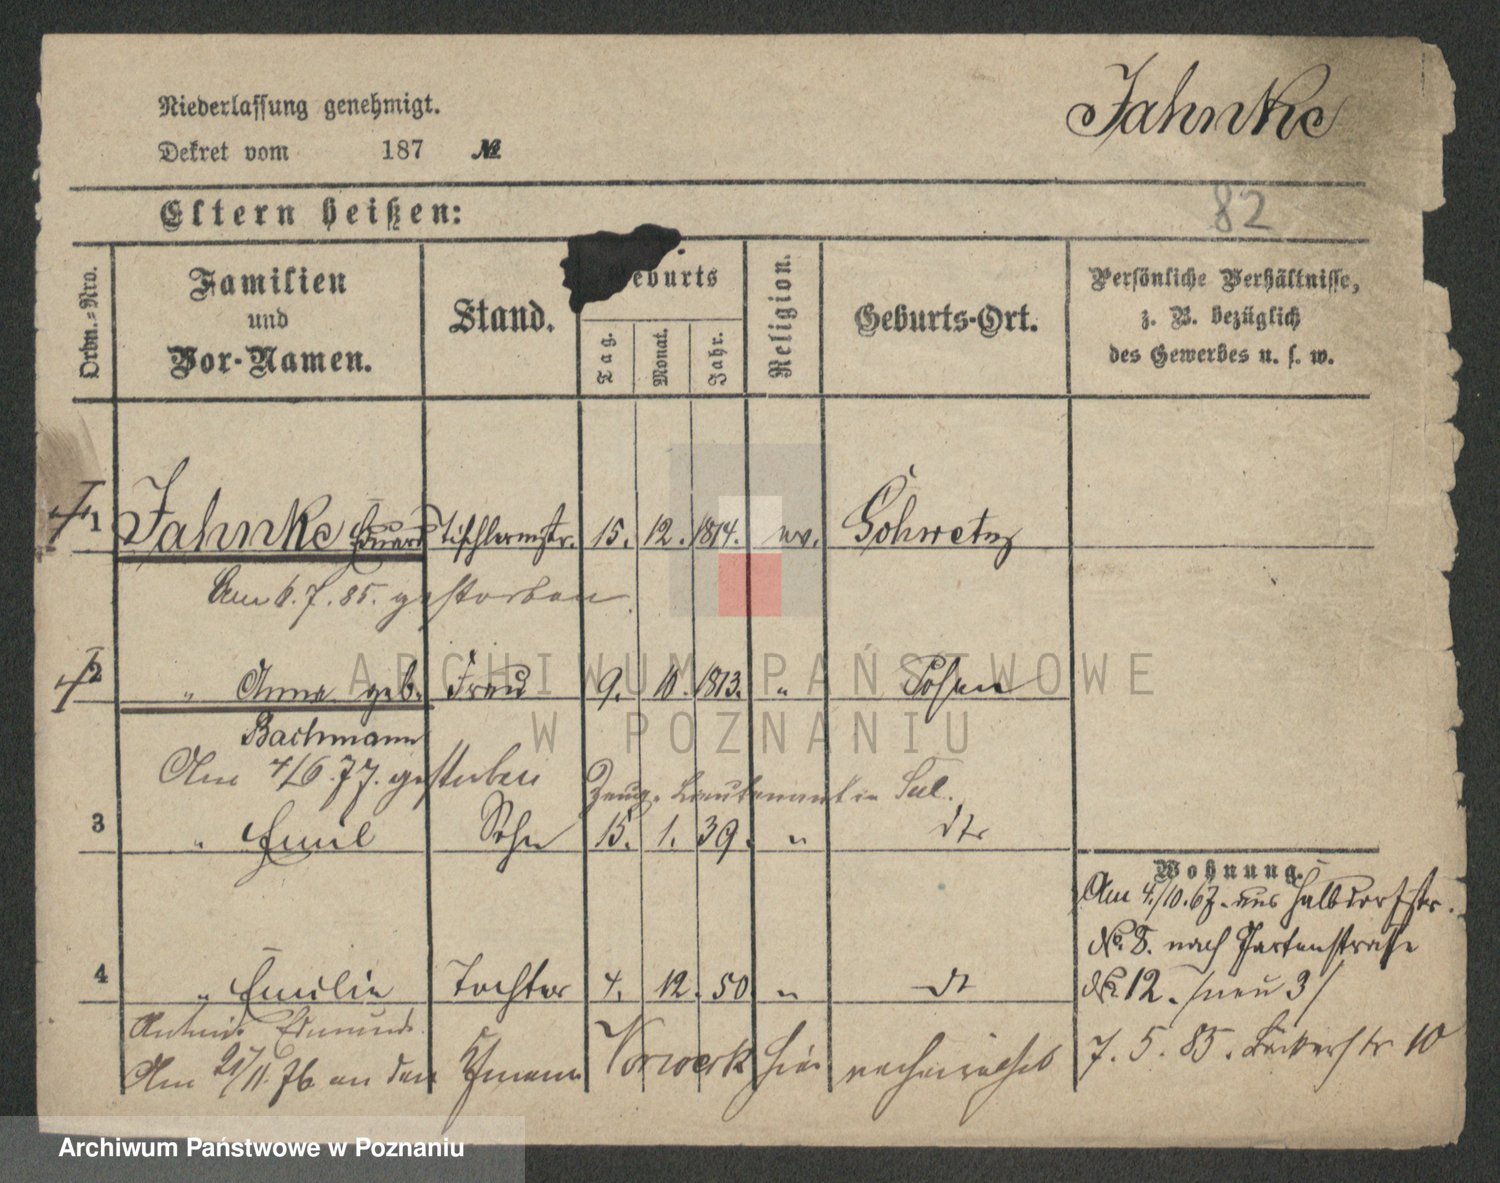 Jahnke
Niederlassung genehmigt.
Dekret vom 187 №
82
Eltern heißen:
Ordn.-Nro.
Familien
und
Vor-Namen.
Stand.
Geburts
Tag.
Monat.
Jahr.
Religion.
Geburts-Ort.
Persönliche Verhältnisse,
z. B. bezüglich
des Gewerbes u. s. w.
1 Jahnke Eduard Tischlermstr. 15. 12. 1814. ev. Schwetz
Am 6.7.85. gestorben.
2 " Anna geb. Frau 9. 10. 1813. " Posen
Bachmann
Am 4/6.77. gestorben
Zeug-Lieutenant in
3 " Emil Sohn 15. 1. 39. " dto
4 " Emilie Tochter 4. 12. 50. " dt
Edmund
Am 21/11.76 an den Vorwerk hier verheirathet
Wohnung.
Am 4./10.67. aus Halbdorfstr.
No. 8. nach Gartenstraße
No. 12. /neu 3/
7. 5. 85. Bäckerstr 10
ARCHIWUM PAŃSTWOWE
W POZNANIU
Archiwum Państwowe w Poznaniu